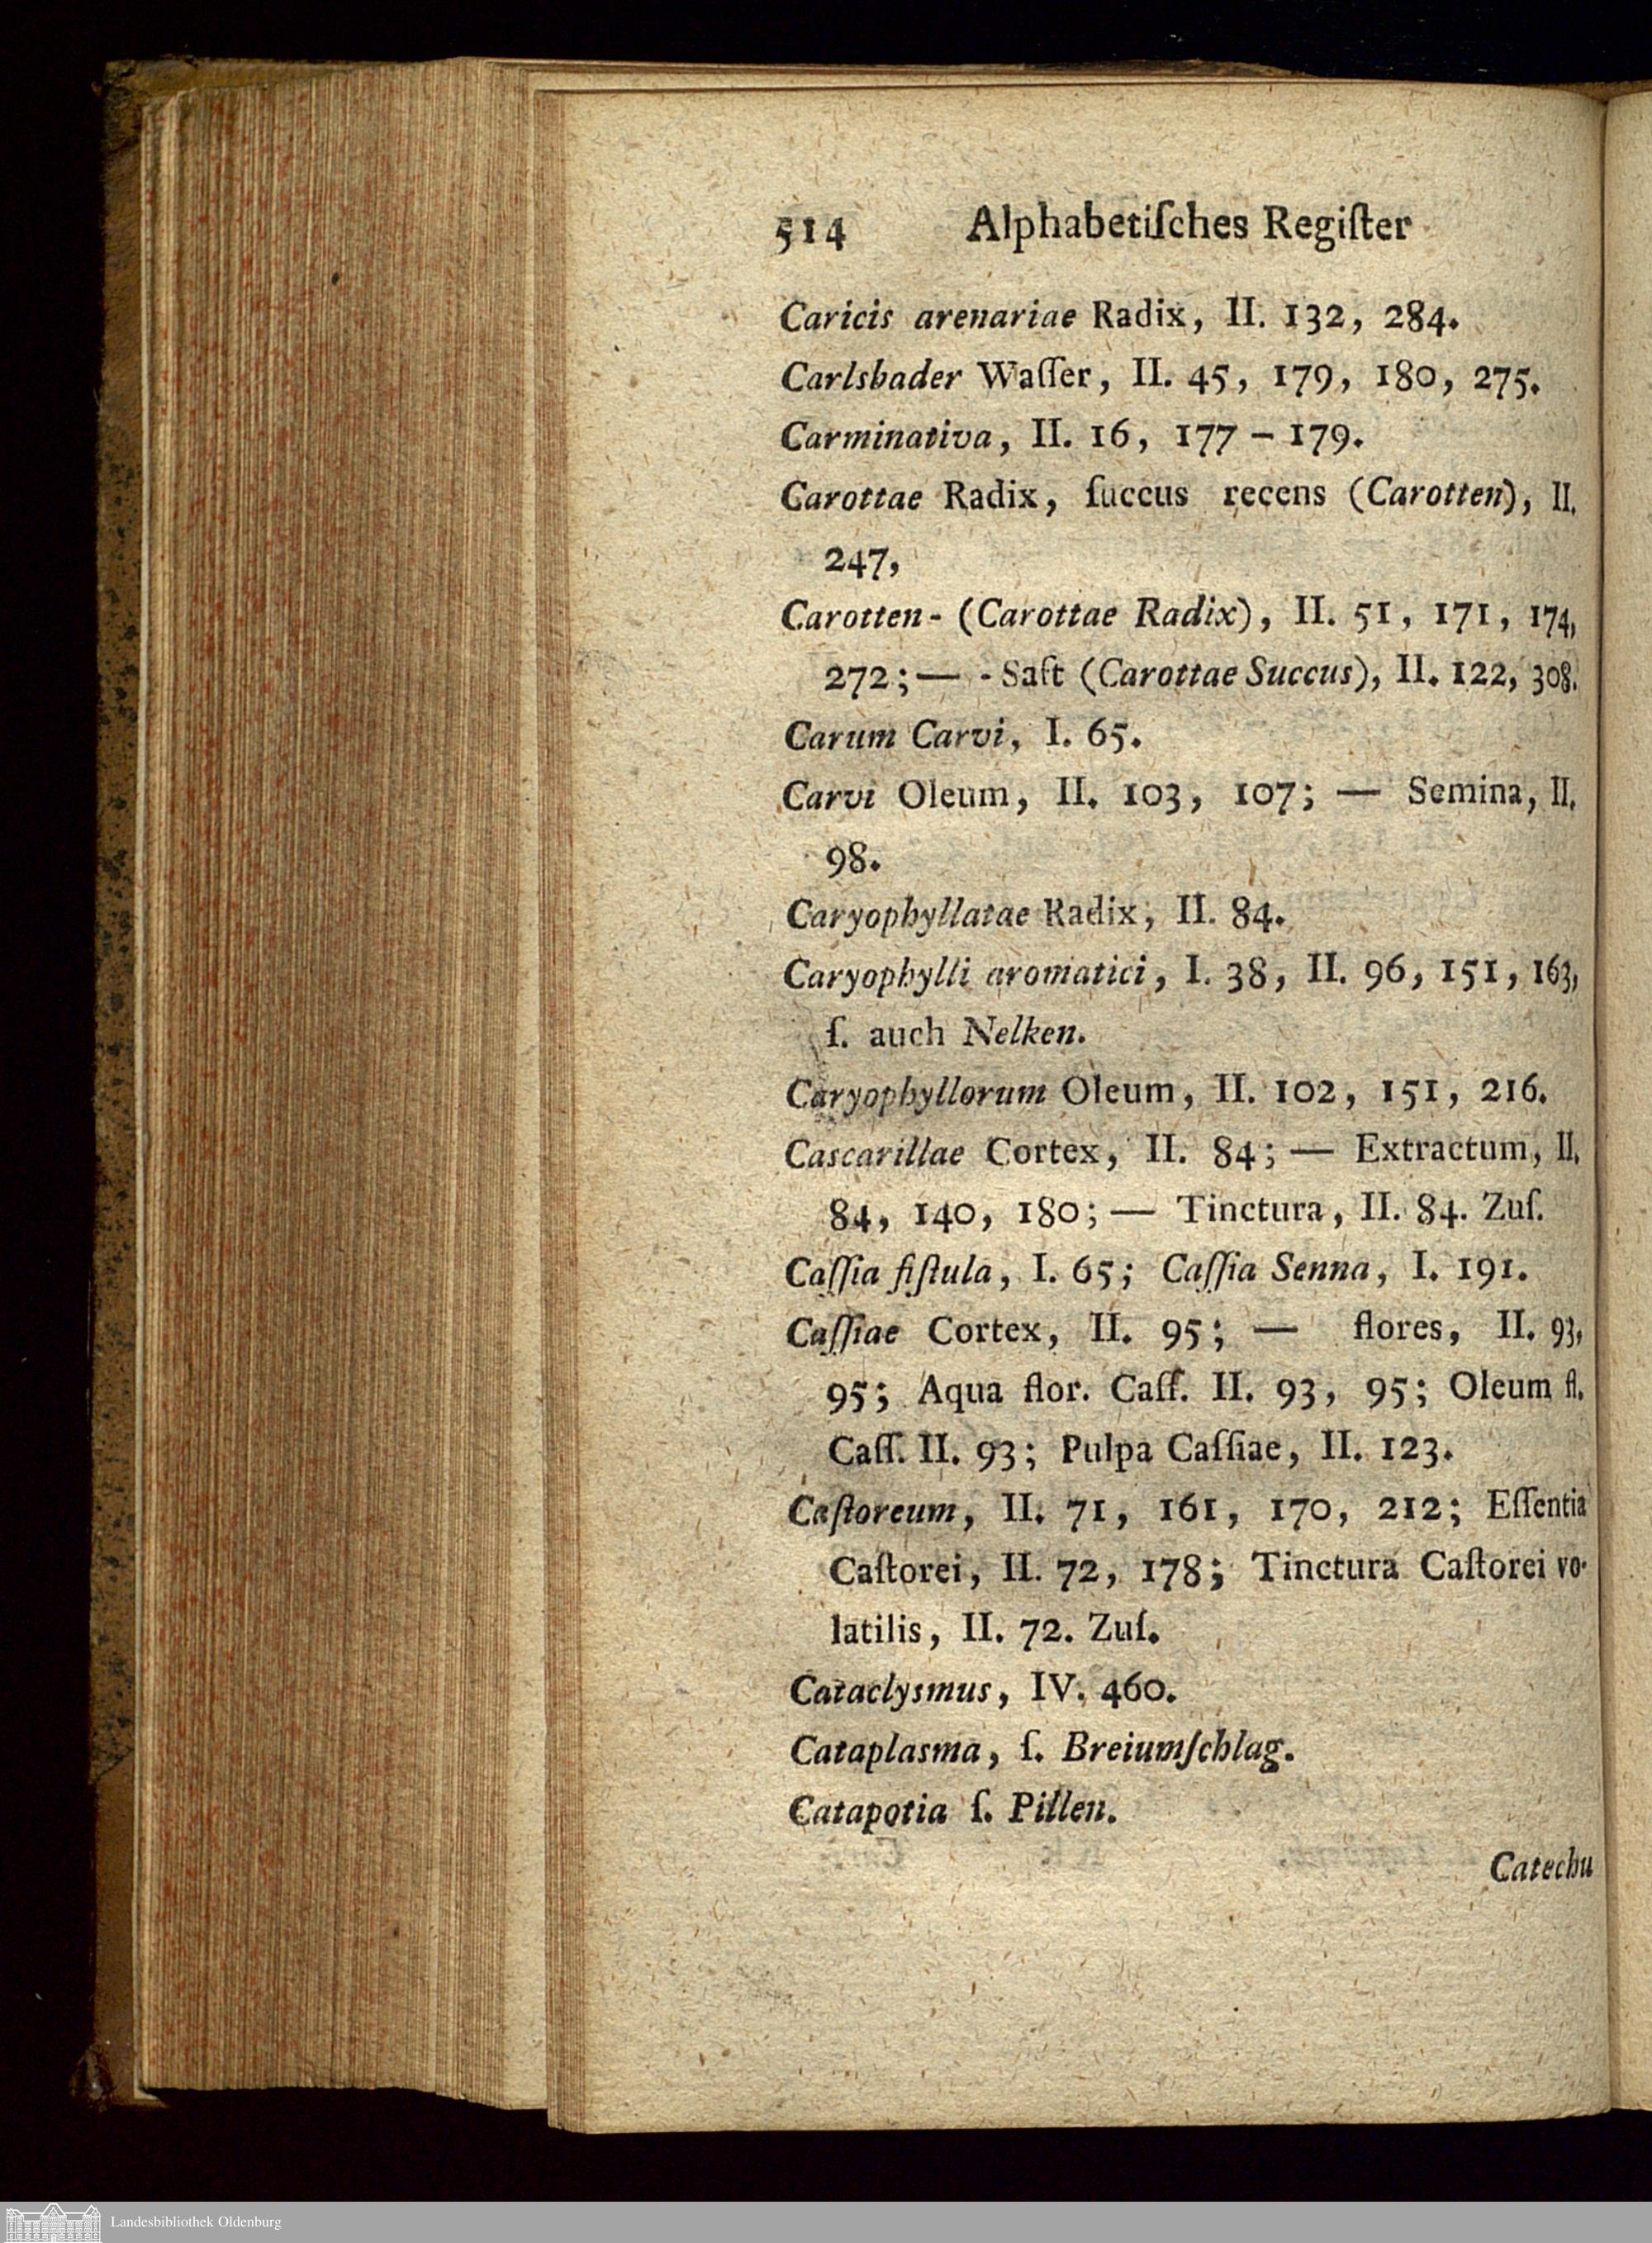 514 Alphabetiſches Regiſter
Caricis arenariae Radix, II. 132, 284.
Carlsbader Waſſer, II. 45, 179, 180, 275.
Carminativa, II. 16, 177 – 179.
Carottae Radix, ſuccus recens (Carotten), II.
247,
Carotten- (Carottae Radix), II. 51, 171, 174,
272; — -Saft (Carottae Succus), II. 122, 308.
Carum Carvi, I. 65.
Carvi Oleum, II. 103, 107; — Semina, II.
98.
Caryophyllatae Radix, II. 84.
Caryophylli aromatici, I. 38, II. 96, 151, 163,
ſ. auch Nelken.
Caryophyllorum Oleum, II. 102, 151, 216.
Cascarillae Cortex, II. 84; — Extractum, II.
84, 140, 180; — Tinctura, II. 84. Zuſ.
Caſſia fiſtula, I. 65; Caſſia Senna, I. 191.
Caſſiae Cortex, II. 95; — flores, II. 93,
95; Aqua flor. Caſſ. II. 93, 95; Oleum fl.
Caſſ. II. 93; Pulpa Caſſiae, II. 123.
Caſtoreum, II. 71, 161, 170, 212; Eſſentia
Caſtorei, II. 72, 178; Tinctura Caſtorei vo-
latilis, II. 72. Zuſ.
Cataclysmus, IV. 460.
Cataplasma, ſ. Breiumſchlag.
Catapotia ſ. Pillen.
Catechu
Landesbibliothek Oldenburg